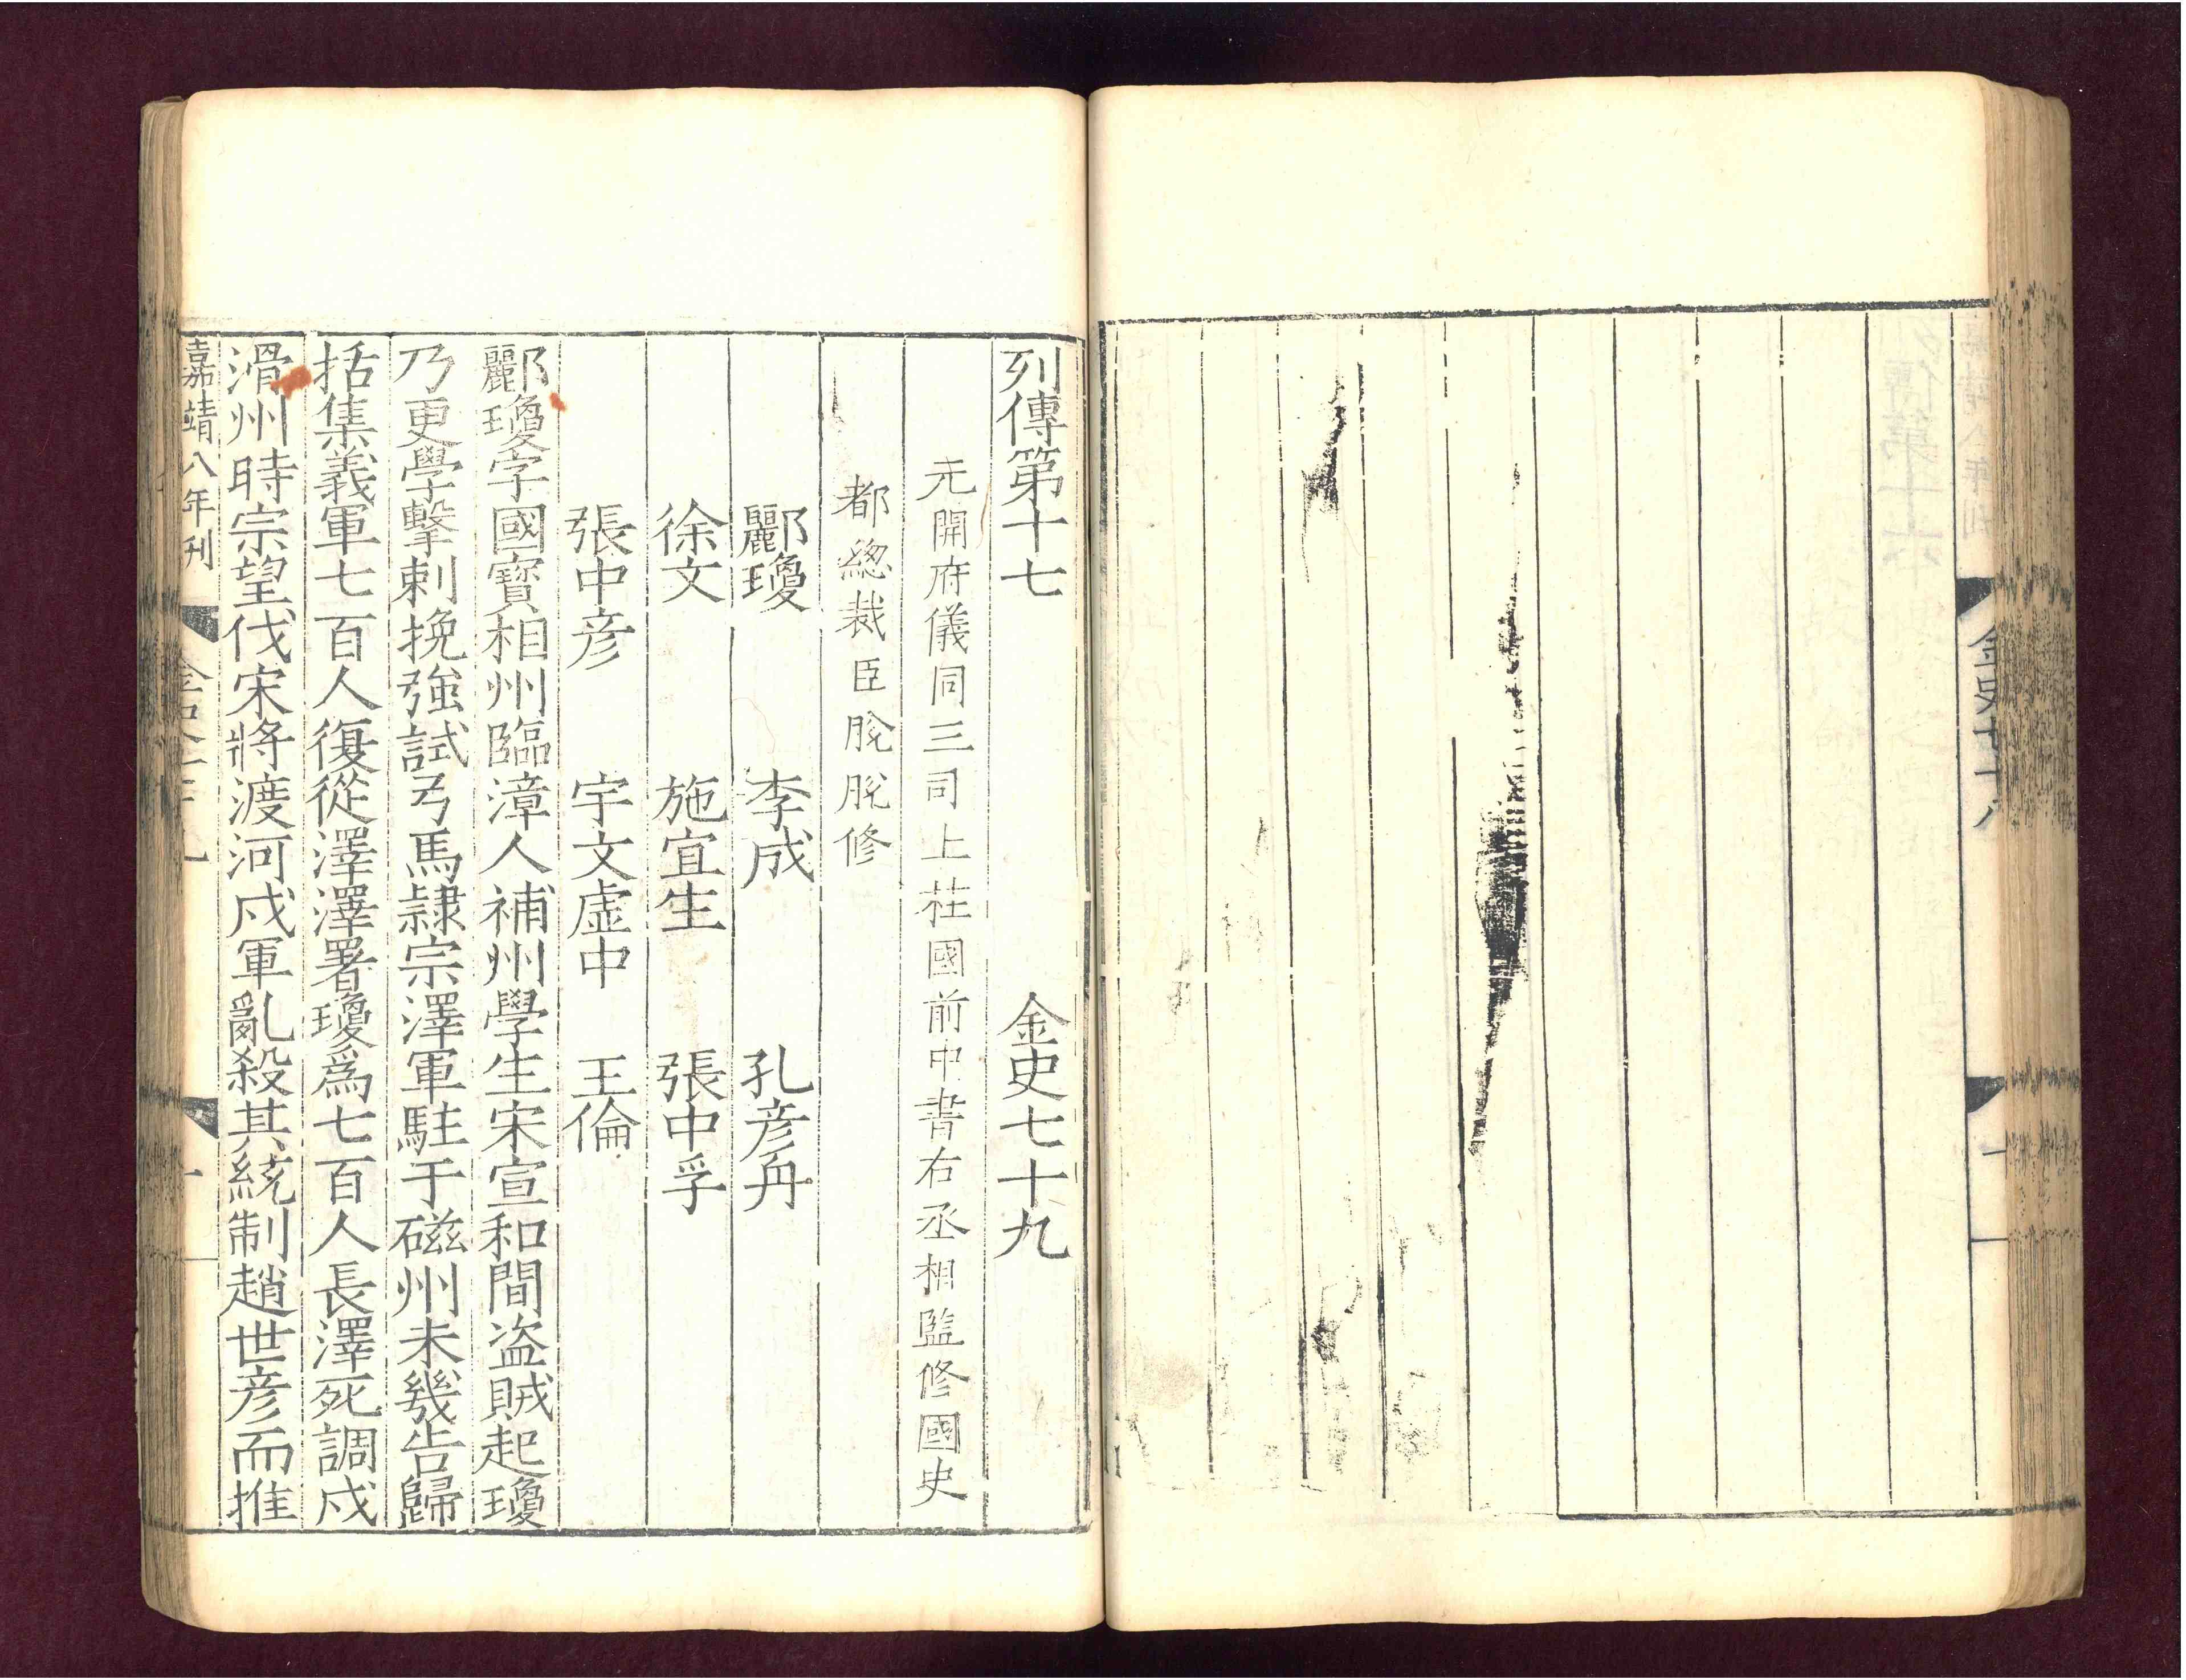 金史七十八
列傳第十七 金史七十九
元開府儀同三司上柱國前中書右丞相監修國史
都總裁臣脫脫修
酈瓊 李成 孔彥舟
徐文 施宜生 張中孚
張中彥 宇文虛中 王倫
酈瓊字國寶相州臨漳人補州學生宋宣和間盜賊起瓊
乃更學擊刺挽強試弓馬隸宗澤軍駐于磁州未幾告歸
括集義軍七百人復從澤澤署瓊爲七百人長澤死調戍
滑州時宗望伐宋將渡河戍軍亂殺其統制趙世彥而推
嘉靖八年刊